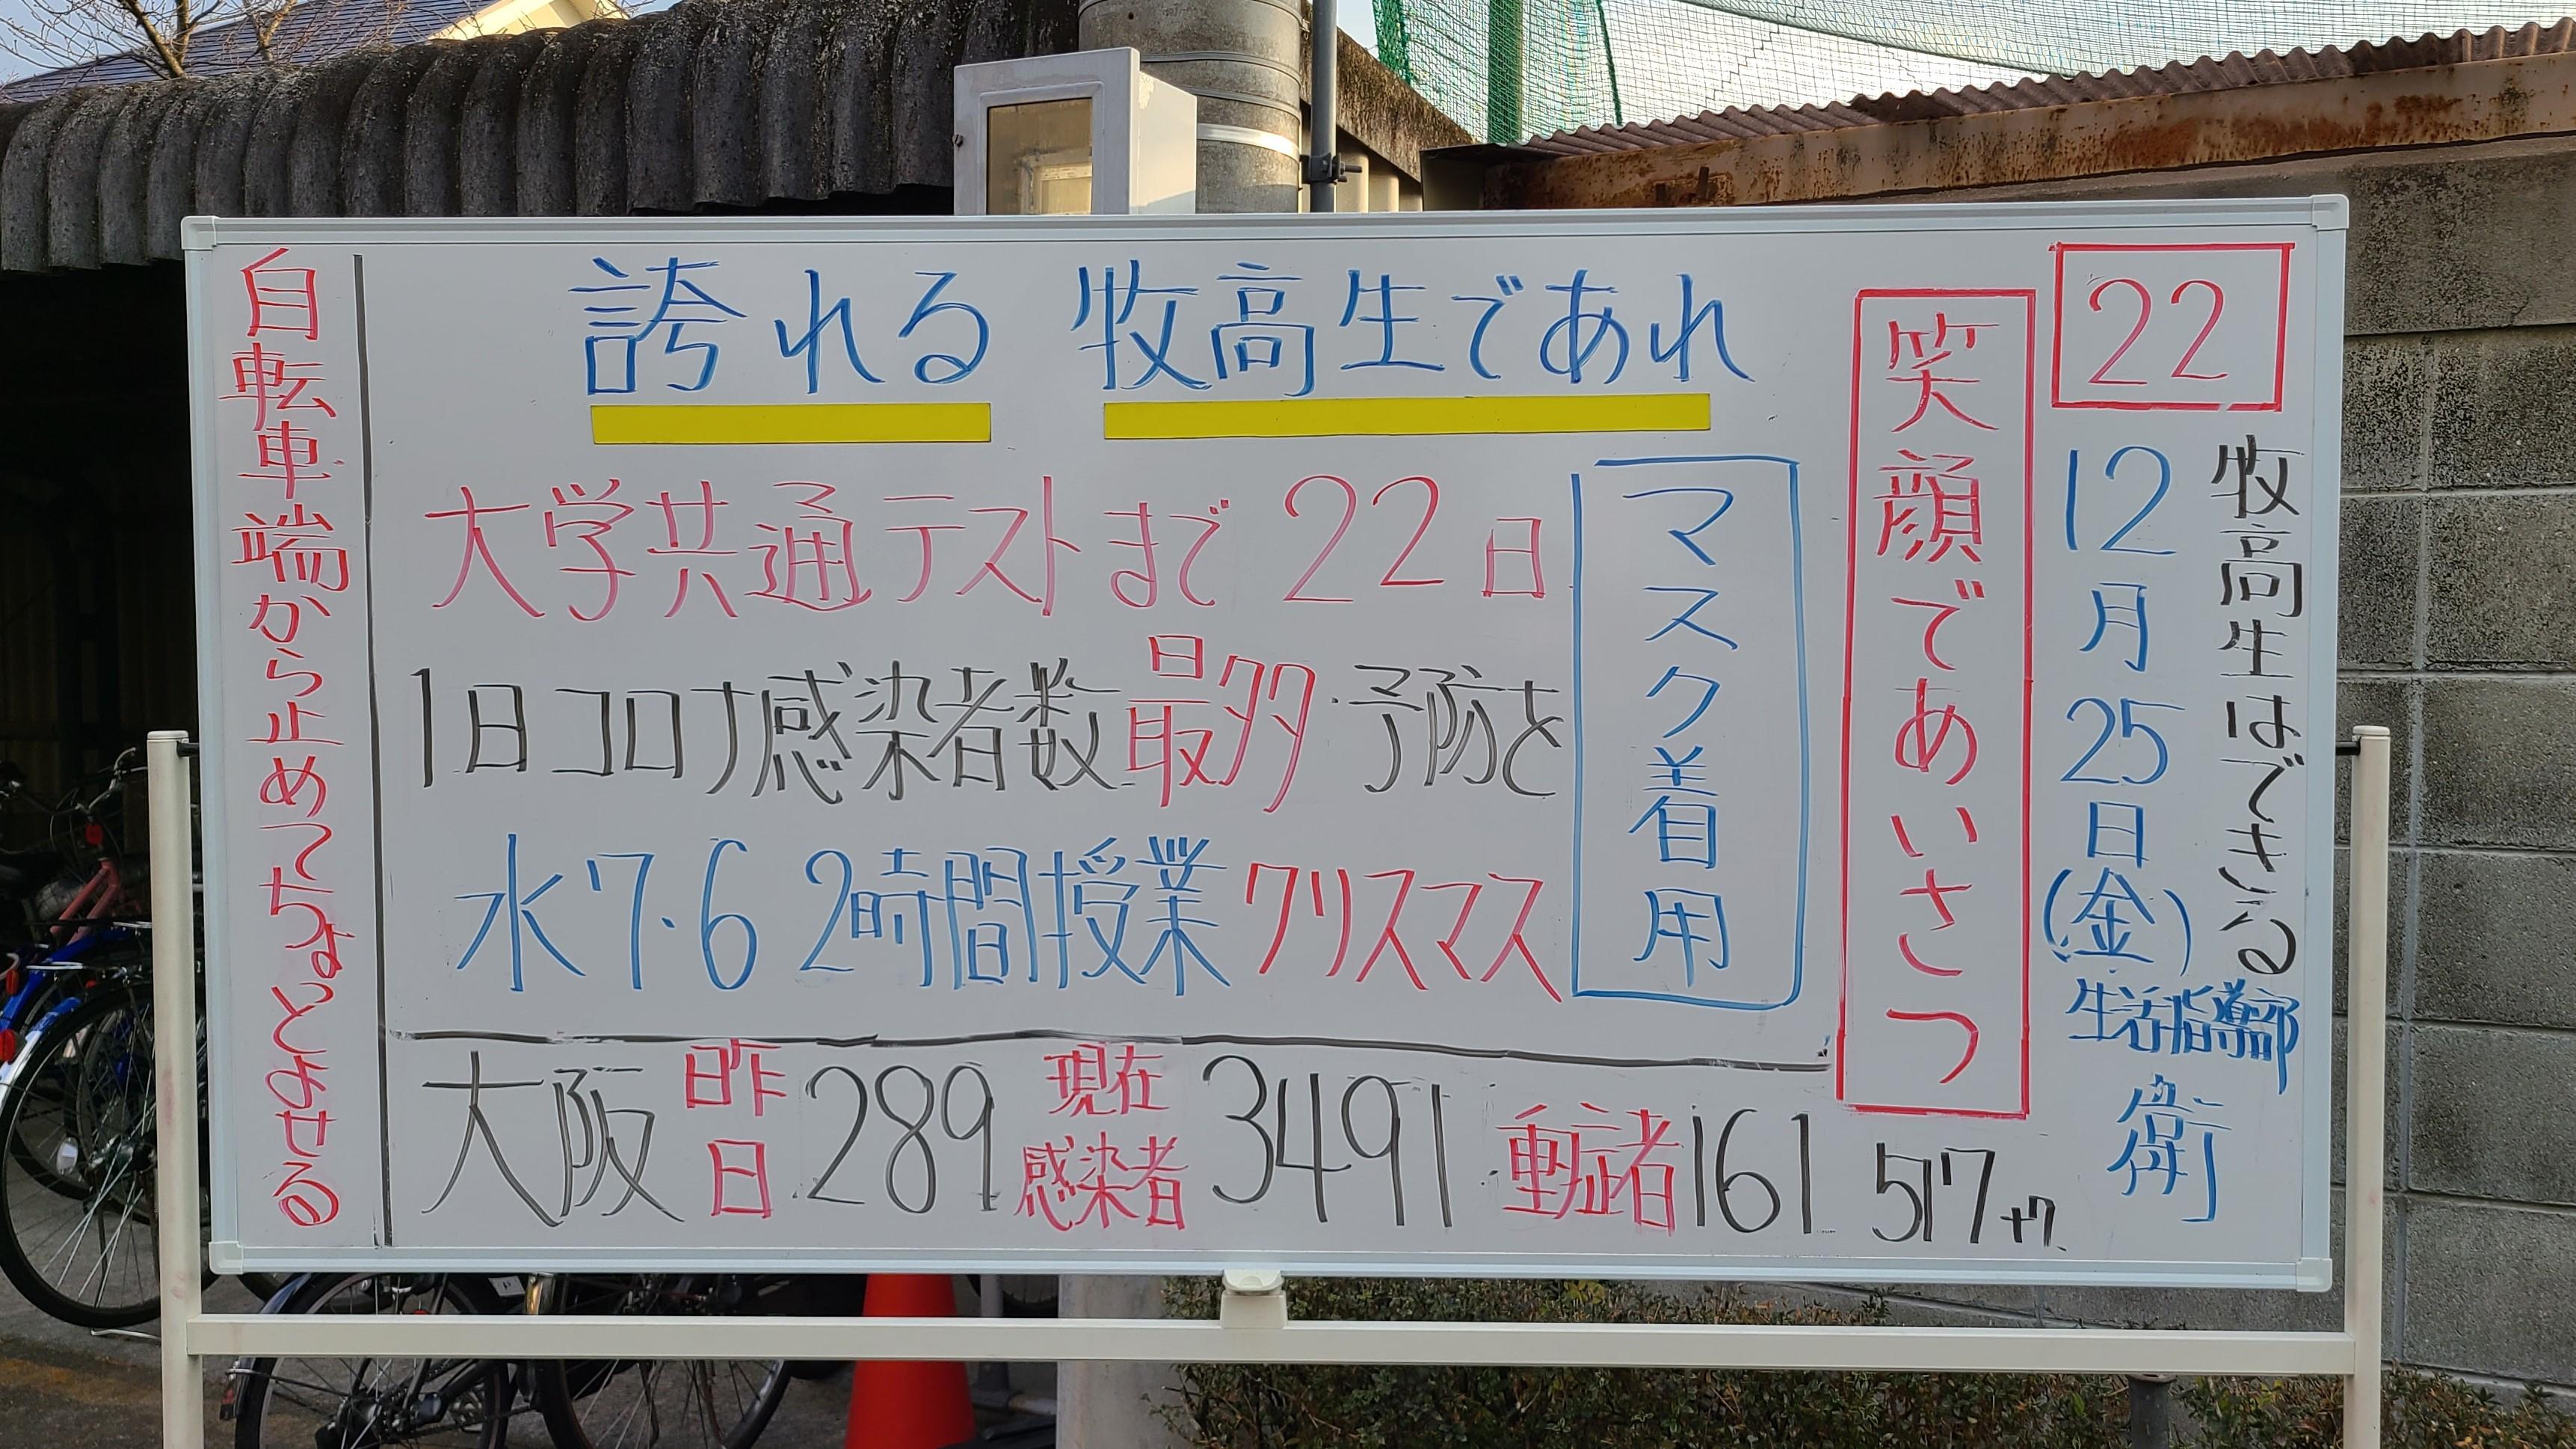 22
牧高生はできる
12月25日(金)
生活指導部
衛
笑顔であいさつ
マスク着用
誇れる 牧高生であれ
大学共通テストまで 22日
1日コロナ感染者数最多 予防を
水7・6 2時間授業 クリスマス
大阪 昨日 289 現在感染者 3491 重症者 161 517
自転車端から止めてちょっとよせる